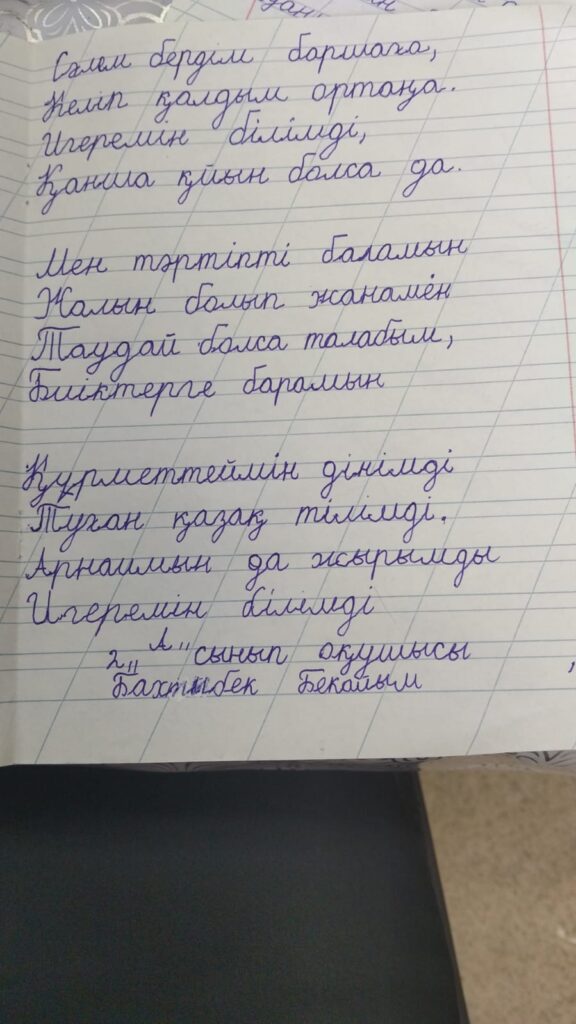 Сәлем бердім баршаға,
Келіп қалдым ортаңа.
Игеремін білімді,
Қанша қиын болса да.
Мен тәртіпті баламын
Жалын болып жанамен
Таудай болса талабым,
Биіктерге барамын
Құрметтеймін дінімді
Туған қазақ тілімді.
Арнаимын да жырымды
Игеремін білімді
2 „А" сынып оқушысы
Бахтыбек Бекайым